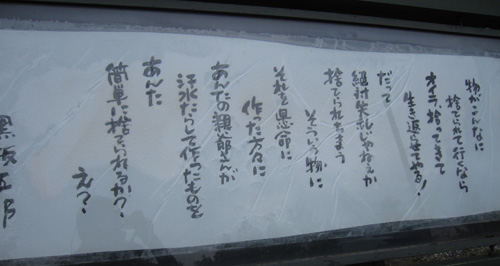 物がこんなに
捨てられて行くなら
オイラ、拾ってきて
生き返させてやる!
だって
絶対失礼じゃねぇか
捨てられちまう
そういう物に
それを懸命に
作った方々に
あんたの親爺さんが
汗水たらして作ったものを
あんた
簡単に捨てられるか?
え?
黒板五郎